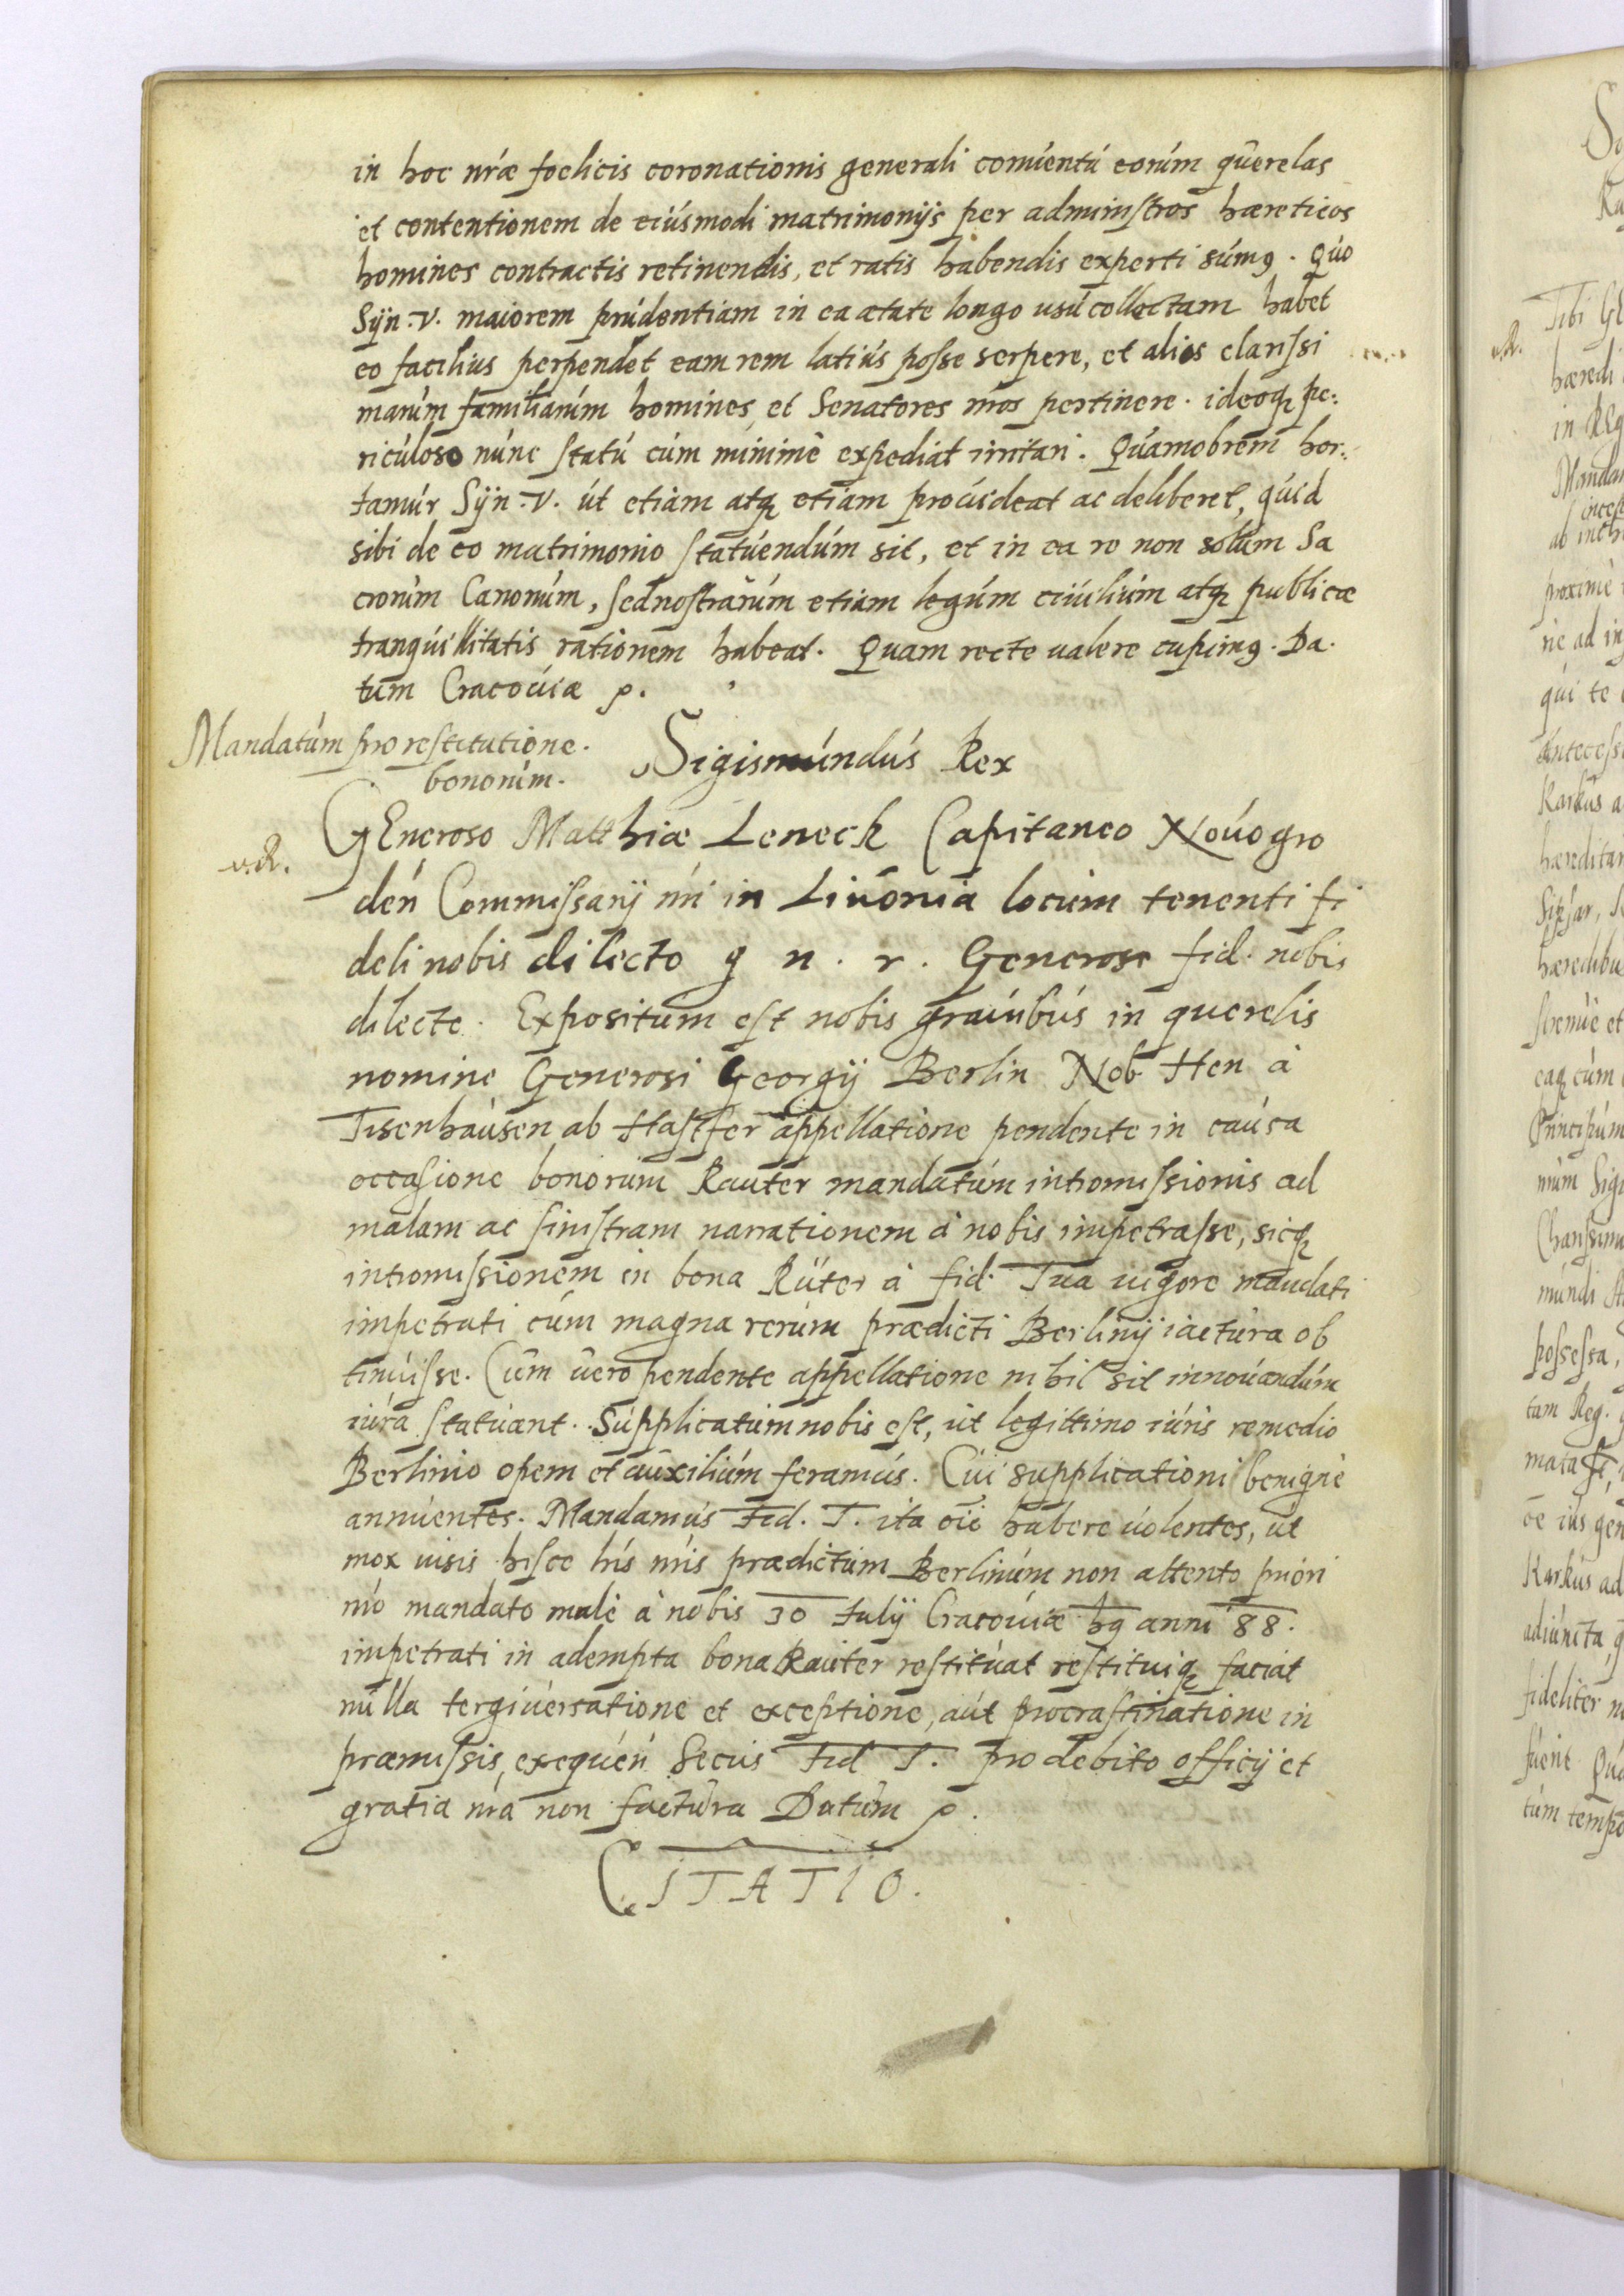 in hoc nræ foelicis coronationis generali conuentu eorum querelas
et contentionem de eiusmodi matrimonijs per administros hæreticos
homines contractis retinendis, et ratis habendis experti sumꝯ. Quo
Syn. V. maiorem prudentiam in ea ætate longo usu collectam habet
eo facilius perpendet eam rem latius posse serpere, et alios clarissi
marum familiarum homines, et Senatores nros pertinere. ideoqꝫ pe:
riculoso nunc statu cum minimè expediat irritari. Quamobrem hor:
tamur Syn. V. ut etiam atqꝫ etiam prouideat ac deliberet, quid
sibi de eo matrimonio statuendum sit, et in ea re non solum Sa
crorum Canonum, sed nostrarum etiam legum ciuilium atqꝫ publicæ
tranquillitatis rationem habeat. Quam recte ualere cupimꝯ. Da.
tum Cracouiæ ꝑ.
Mandatum pro restitutione.
bonorum.
Sigismundus Rex
GEneroso Matthiæ Leneck Capitaneo Nouogro
deñ Commissarij nri in Liuonia locum tenenti fi
deli nobis dilecto g n. r. Generose fid. nobis
dilecte. Expositum est nobis grauibus in querelis
nomine Generosi Georgij Berlin Nob Hen à
Tisenhausen ab Hastfer appellatione pendente in causa
occasione bonorum Rauter mandatum intromissionis ad
malam ac sinistram narrationem à nobis impetrasse, sicqꝫ
intromissionem in bona Rüter à fid. Tua uigore mandati
impetrati cum magna rerum prædicti Berlinij iactura ob
tinuisse. Cum uero pendente appellatione nihil sit innouandum
iura statuant. Supplicatum nobis est, ut legittimo iuris remedio
Berlinio opem et auxilium feramus. Cui supplicationi benignè
annuentes. Mandamus Fid. T. ita oīō habere uolentes, ut
mox uisis hisce lrís nris prædictum Berlinium non attento priori
nro mandato malè à nobis 30 Julij Cracouiæ hꝯ anni 88.
impetrati in adempta bona Rauter restituat restituiqꝫ faciat
nulla tergiuersatione et exceptione, aut procrastinatione in
præmissis, exequeñ Secus Fid T. pro debito officij et
gratia nra non factura Datum ꝑ.
CITATIO.